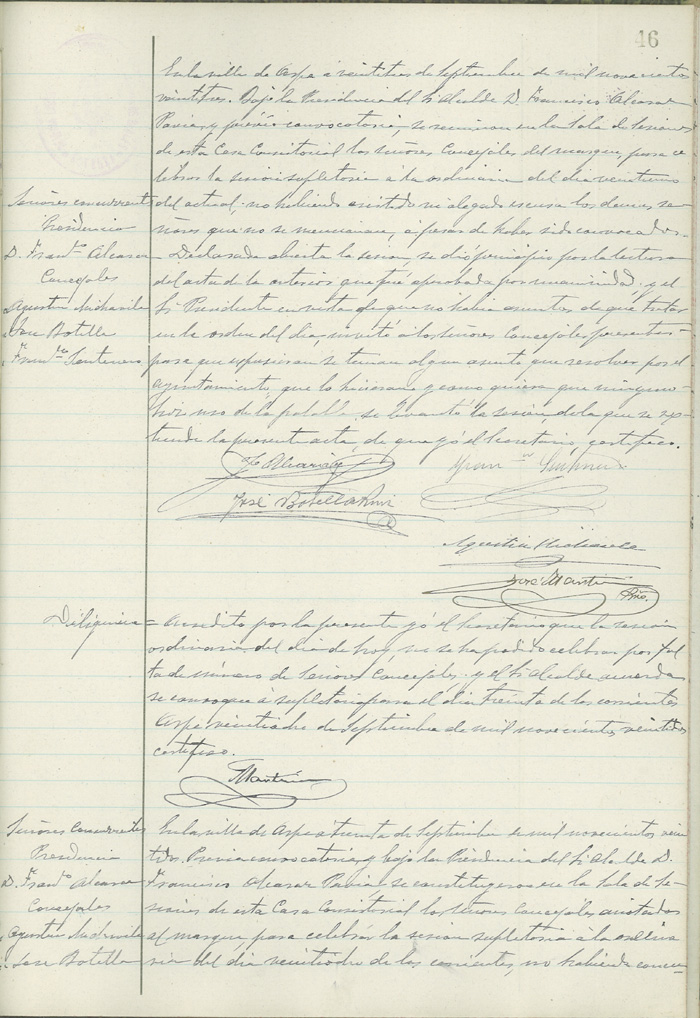 46
En la villa de Aspe á veintitres de Septiembre de mil novecientos
veintitres. Bajo la Presidencia del Sr. Alcalde D. Francisco Alcaraz
Pavia, y prévia convocatoria, se reunieron en la Sala de Sesiones
de esta Casa Consistorial los señores Concejales del margen, para ce
lebrar la sesión supletoria á la ordinaria del dia veintiuno
Señores concurrentes
del actual; no habiendo asistido ni alegado escusa los demás se
Presidencia
ñores que no se mencionan, á pesar de haber sido convocados.
D. Franco Alcaraz
Declarada abierta la sesión se dió principio por la lectura
Concejales
del acta de la anterior que fué aprobada por unanimidad. y el
Agustin
Sr. Presidente en vista de que no habia asuntos de que tratar
José Botella
en la orden del dia, invitó á los señores Concejales presentes
Franco Santonero
para que expusieran se tenian algun asunto que resolver por el
ayuntamiento, que lo hicieran y como quiera que ninguno
hizo uso de la palabra se levantó la sesión, de la que se ex-
tiende la presente acta, de que yó el Secretario, certifico.
F. Alcaraz
José Botella
Agustin
José Martin
Srio.
Diligencia = Acredito por la presente yó el Secretario que la sesión
ordinaria del dia de hoy, no se ha podido celebrar por fal
ta de número de Señores Concejales. y el Sr. Alcalde acuerda
se convoque á supletoria para el dia treinta de los corrientes
Aspe veintiocho de Septiembre de mil novecientos veintidos
certifico.
Martin
Señores Concurrentes
En la villa de Aspe á treinta de Septiembre de mil novecientos vein
Presidencia
tidos. Previa convocatoria, y bajo la Presidencia del Sr. Alcalde D.
D. Franco Alcaraz
Francisco Alcaraz Pavia se constituyeron en la Sala de Se-
Concejales
siones de esta Casa Consistorial los señores Concejales anotados
Agustin
al margen para celebrar la sesion supletoria á la ordina
José Botella
ria del dia veintiocho de los corrientes, no habiendo concu-